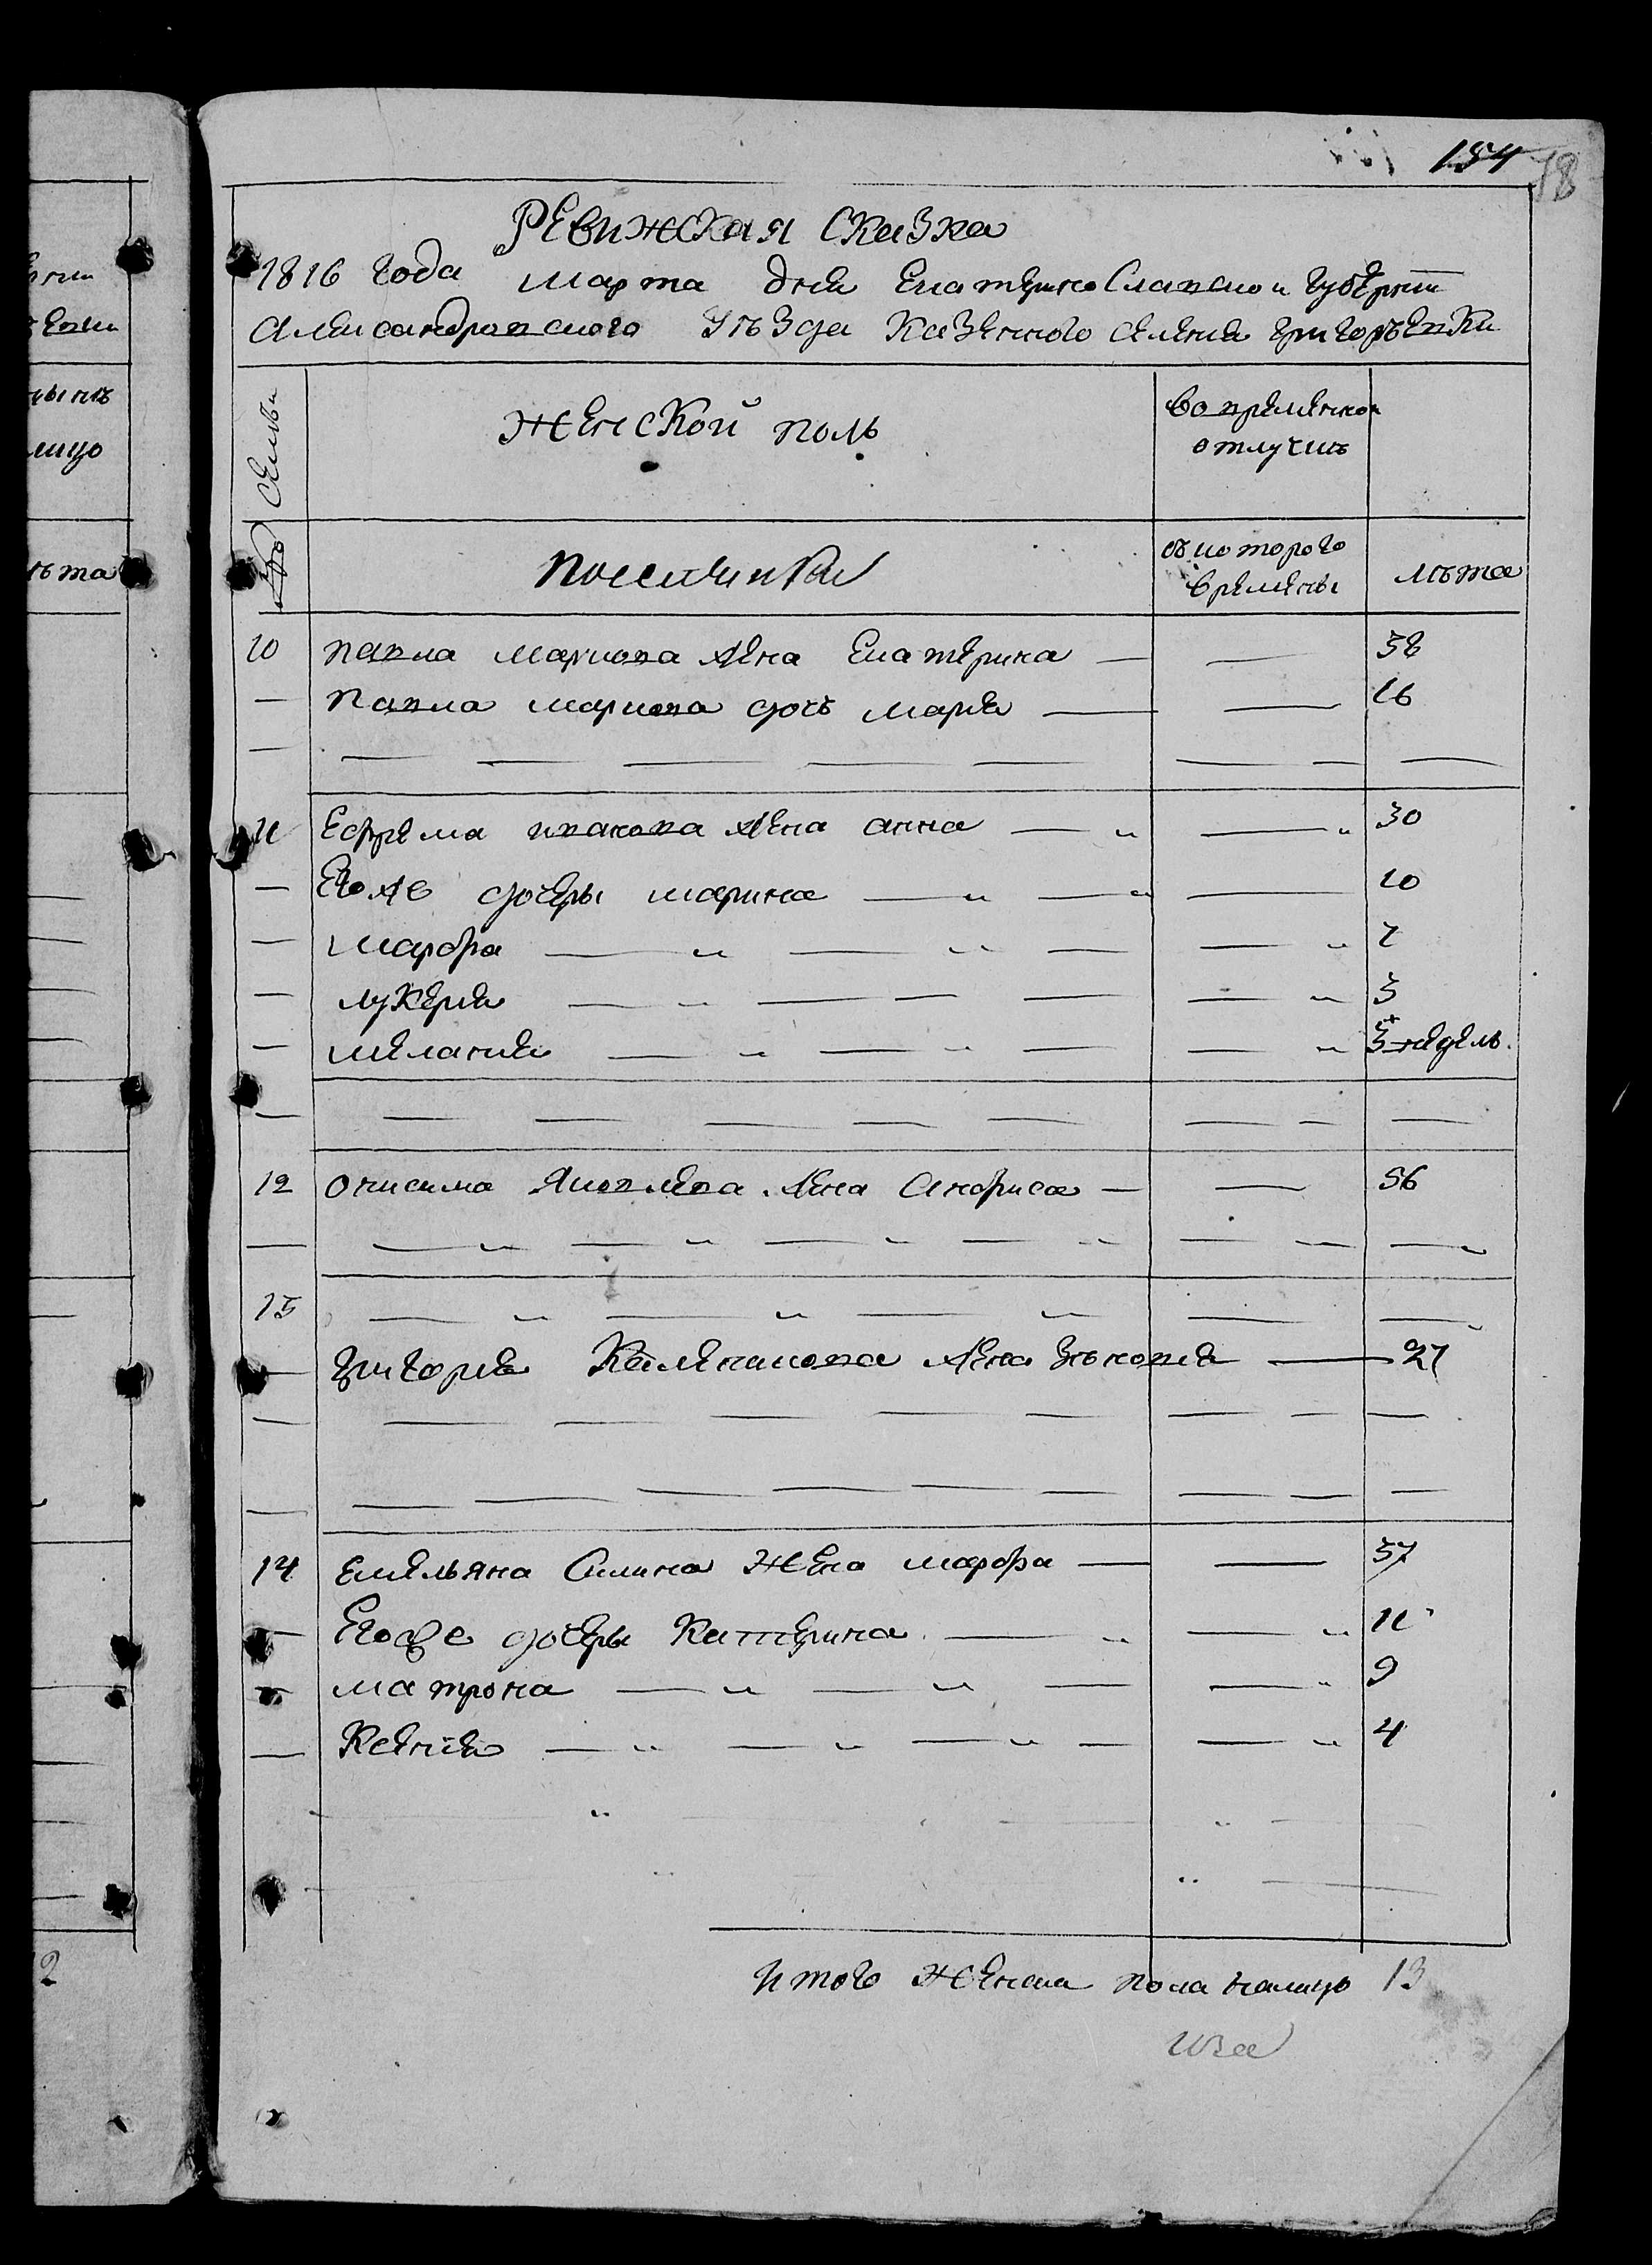 154
78
Ревижская сказка
1816 года марта дня Екатеринославской губернии
Александровского уѣзда казенного селения Григорьевки
№ семьи
женской полъ
во временной
отлучкѣ
съ которого
времены
лѣта
10 Павла Маркова жена Екатерина — — 38
— Павла Маркова дочь Мария — — 16
11 Ефрема Иванова жена Анна — — 30
— Его же дочеры Марина — — 10
— Марфа — — 7
— Лукерия — — 3
— Мелания — — 3 недель.
12 Онисима Яковлева жена Анфиса — — 56
13
— Григория Калиникова жена Зѣновия — 27
14 Емельяна Силина жена Марфа — — 37
— Его же дочеры Катерина — — 11
— Матрона — — 9
— Ксения — — 4
Итого женска пола налицо 13